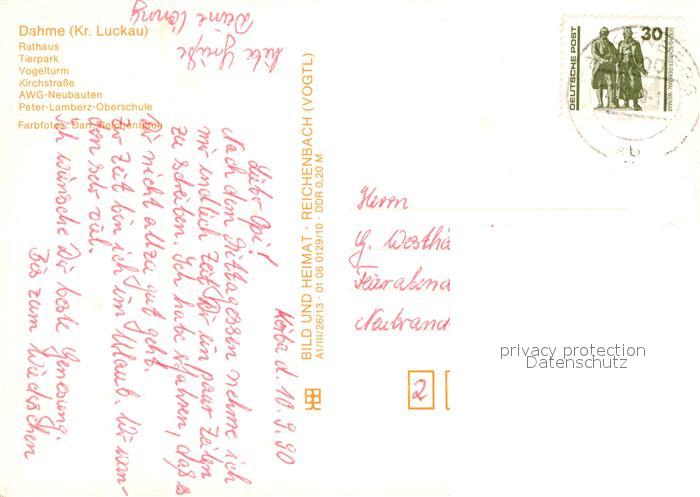 Dahme (Kr. Luckau)
Rathaus
Tierpark
Vogelturm
Kirchstraße
AWG-Neubauten
Peter-Lamberz-Oberschule
Farbfotos: Darr, Reichenbach
BILD UND HEIMAT · REICHENBACH (VOGTL)
A1/III/26/13 · 01 06 0129/10 · DDR 0,20 M
DEUTSCHE POST
30
d. 10. 9. 90
Lieber Opi!
Nach dem Mittagessen nehme ich
mir endlich Zeit Dir ein paar Zeilen
zu schreiben. Ich habe erfahren, daß es
Dir nicht allzu gut geht.
Zur Zeit bin ich im Urlaub. Wir wan-
dern sehr viel.
Ich wünsche Dir beste Genesung.
Bis zum Wiedersehen
liebe Grüße
Deine Conny
Herrn
G. Westhä
Feierabend
Neubrand
2
privacy protection
Datenschutz